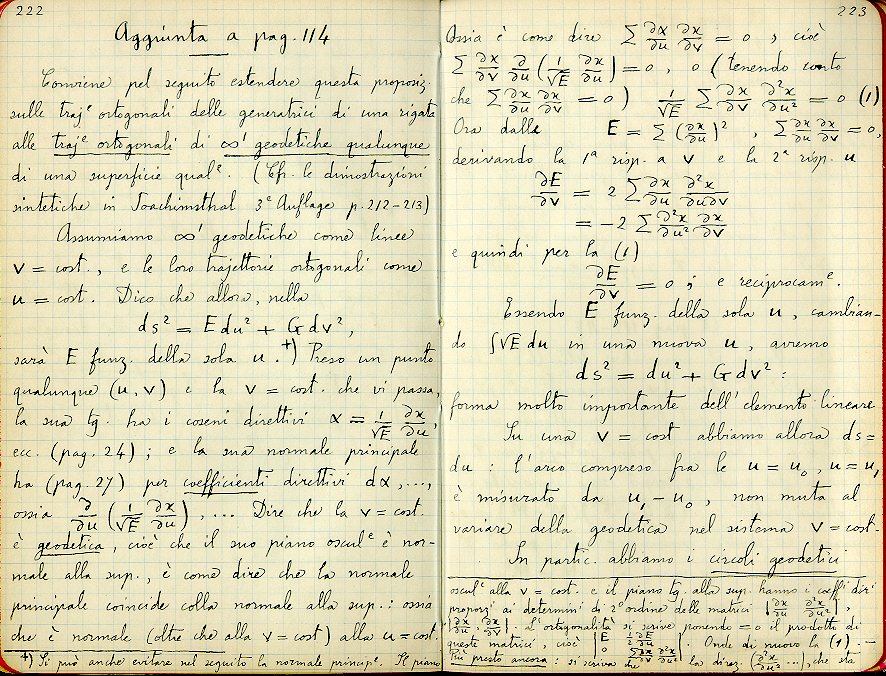 222
Aggiunta a pag. 114
Conviene pel seguito estendere questa proposiz.
sulle traj.e ortogonali delle generatrici di una rigata
alle traj.e ortogonali di ∞¹ geodetiche qualunque
di una superficie qual.e. (Cfr. le dimostrazioni
sintetiche in Joachimsthal 3.e Auflage p. 212-213)
Assumiamo ∞¹ geodetiche come linee
v = cost., e le loro trajettorie ortogonali come
u = cost. Dico che allora, nella
ds² = E du² + G dv²,
sarà E funz. della sola u. +) Preso un punto
qualunque (u, v) e la v = cost. che vi passa,
la sua tg. ha i coseni direttivi α = 1/√E ∂x/∂u,
ecc. (pag. 24); e la sua normale principale
ha (pag. 27) per coefficienti direttivi dα, ...,
ossia ∂/∂u (1/√E ∂x/∂u), ... Dire che la v = cost.
è geodetica, cioè che il suo piano oscul.e è nor-
male alla sup., è come dire che la normale
principale coincide colla normale alla sup.: ossia
che è normale (oltre che alla v = cost) alla u = cost.
+) Si può anche evitare nel seguito la normale princip.e. Il piano
223
Ossia è come dire Σ ∂x/∂u ∂x/∂v = 0, cioè
Σ ∂x/∂v ∂/∂u (1/√E ∂x/∂u) = 0, o (tenendo conto
che Σ ∂x/∂u ∂x/∂v = 0) 1/√E Σ ∂x/∂v ∂²x/∂u² = 0 (1)
Ora dalle E = Σ (∂x/∂u)², Σ ∂x/∂u ∂x/∂v = 0,
derivando la 1ª risp. a v e la 2ª risp. u
∂E/∂v = 2 Σ ∂x/∂u ∂²x/∂u∂v
= -2 Σ ∂²x/∂u² ∂x/∂v
e quindi per la (1)
∂E/∂v = 0; e reciprocam.e.
Essendo E funz. della sola u, cambian-
do ∫√E du in una nuova u, avremo
ds² = du² + G dv²:
forma molto importante dell'elemento lineare
Su una v = cost abbiamo allora ds =
du: l'arco compreso fra le u = u₀, u = u₁
è misurato da u₁ - u₀, non muta al
variare della geodetica nel sistema v = cost.
In partic. abbiamo i circoli geodetici
oscul.e alla v = cost. e il piano tg. alla sup. hanno i coeffi diri
proporzi ai determini di 2° ordine delle matrici |∂x/∂u ∂²x/∂u²|,
|∂x/∂u ∂x/∂v|. L'ortogonalità si scrive ponendo = 0 il prodotto di
queste matrici, cioè |E ½ ∂E/∂u; 0 Σ ∂x/∂v ∂²x/∂u²|. Onde di nuovo la (1). —
Più presto ancora: si scriva che la direz. (∂²x/∂u² ...), che sta